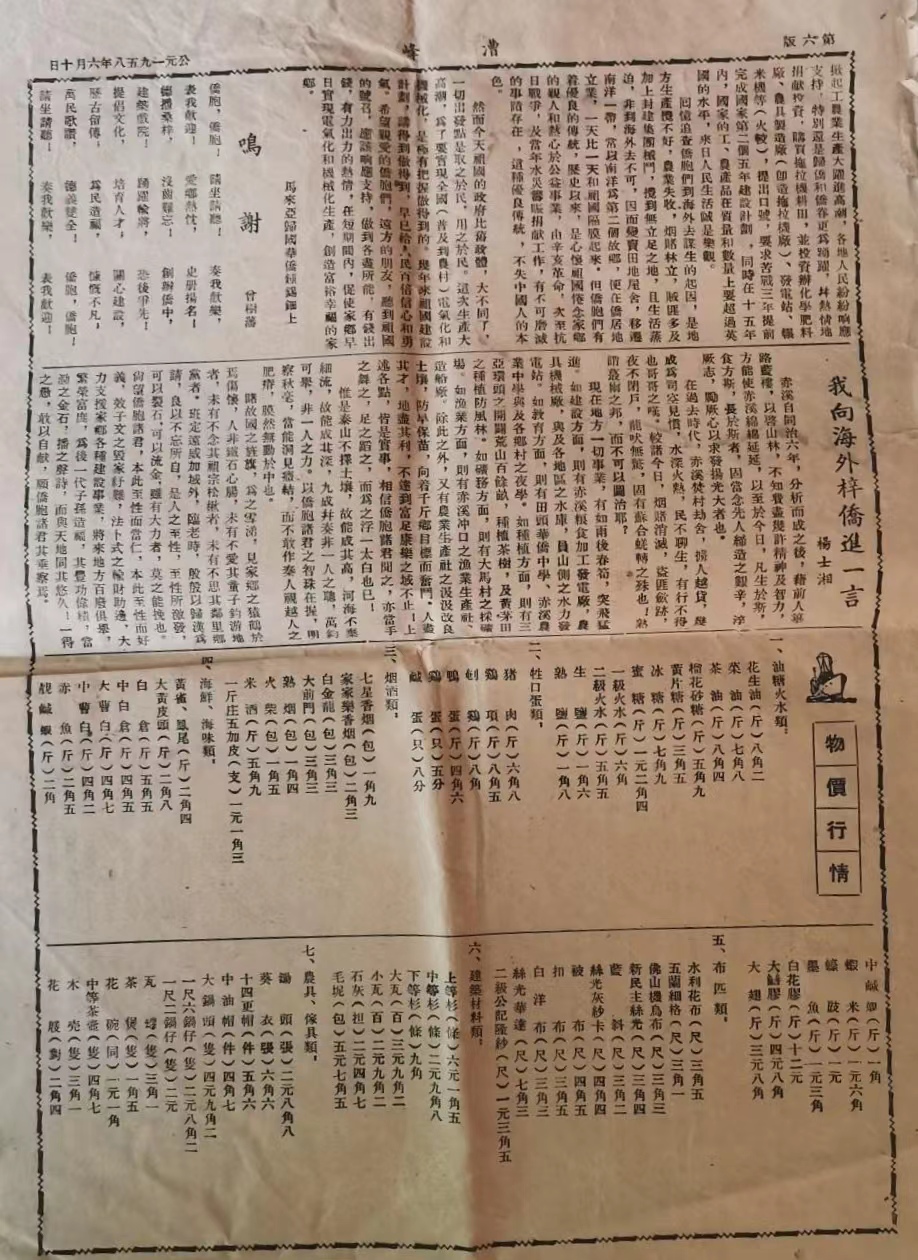 第六版
漕峰
公元一九五八年六月十日
掀起工農業生產大躍進高潮,各地人民紛紛响應
支持,特別還是歸僑和僑眷更為踴躍,并熱情地
捐獻投資,購買拖拉機耕田,並投資辦化學肥料
廠、農具製造廠(即造拖拉機廠)、發電站、輾
米機等(火較),提出口號,要求苦戰三年提前
完成國家第二個五年建設計劃,同時在十五年
內,國家的工、農產品在質量和數量上要超過英
國的水平,來日人民生活誠是樂觀。
回憶追查僑胞們到海外去謀生的起因,是地
方生產攪不好,農業失收,烟賭林立,賊匪多及
加上封建集團械鬥,攪到無立足之地,且生活蒸
迫,非到海外去不可,因而變賣田地屋舍,移遷
南洋一帶,常以南洋為第二個故鄉,便在僑居地
立業,一天比一天和祖國隔膜起來,但僑胞們有
着優良的傳統,歷史以來,是心懷祖國倦念家鄉
的觀人和熱心於公益事業,由辛亥革命,次至抗
日戰爭,及當年水災饑賑捐獻工作,有不可磨滅
的事蹟存在,這種優良傳統,不失中國人的本
色。
然而今天祖國的政府比舊政體,大不同了,
一切出發點是取之於民,用之於民。這次生產大
高潮,為了要實現全國(普及到農村)電氣化和
機械化,是極有把握做得到的。幾年來祖國建設
計劃,講得到做得到,早已給人民有信心和勇
氣。希望親愛的僑胞們,遠方的朋友,聽到祖國
的號召,應該响應支持,做到各盡所能,有錢出
錢,有力出力的熱情,在短期間內,促使家鄉早
日實現電氣化和機械化生產,創造富裕幸福的家
鄉。
馬來亞歸國華僑傾銻鏪上
鳴謝
曾樹藩
僑胞!僑胞!請坐請聽!奏我獻樂,
表我歡迎!愛鄉熱忱,史册揚名!
德播桑梓,沒齒難忘!創辦僑中,
建築戲院!踴躍輸將,恐後爭先!
提倡文化,培育人才!關心建設,
歷古留傳!為民造福,慷慨不凡!
萬民歌讚,德義雙全!僑胞,僑胞!
請坐請聽!奏我獻樂,表我歡迎!
我向海外梓僑進一言
楊士湘
赤溪自同治六年,分析而成之後,藉前人篳
路藍樓,以啓山林,不知費盡幾許精神及智力,
方能使赤溪綿綿延延,以至於今日,凡生於斯,
食方斯,長於斯者,固當念先人締造之艱辛,淬
厥志,勵厥心以求發揚光大者也。
在過去時代,赤溪焚村劫舍,擄人越貨,幾
成為司空見慣,水深火熱,民不聊生,有行不得
也哥哥之嘆。較諸今日,烟賭消滅,盜匪歛跡,
夜不閉戶,龍吠無驚,固有蘇合蜣轉之殊也!孰
謂蕞爾之邦,而不可以圖治耶?
現在地方一切事業,有如雨後春筍,突飛猛
進。如建設方面,則有赤溪糧食加工發電廠,農
具機械廠,與及各地區之水庫,員山側之水力發
電站。如教育方面,則有田頭華僑中學、赤溪農
業中學與及各鄉村之夜學。如種植方面,則有三
亞環頭之開闢荒山百餘畝,種植茶樹,及黃茅田
之種植防風林。如礦務方面,則有大馬村之採礦
場。如漁業方面,則有赤溪冲口之漁業生產社、
造船廠。除此之外,又有農業生產社之汲汲改良
土壤,防旱保苗,向着千斤鄉目標而奮鬥。人盡
其才,地盡其利,不達到富足康樂之域不止!上
述各點,皆是實事,相信僑胞諸君聞之,亦當手
之舞之,足之蹈之,而為之浮一太白也已!
惟是泰山不擇土壤,故能成其高,河海不棄
細流,故能成其深,九成井奏非一人之聽,萬鈞
可舉,非一人之力。以僑胞諸君之智珠在握,明
察秋毫,當能洞見癥結,而不敢作秦人視越人之
肥瘠,膜然無動於中也。
睹故國之旌旗,為之雪涕,見家鄉之猿鶴於
焉傷懷,人非鐵石心腸,未有不愛其童子釣游地
者,未有不念其祖宗松楸者,未有不思其鄰里鄉
黨者。班定遠威加域外,臨老時,殷殷以歸漢為
請,良以不忘所自,是人之至性,至性所激發,
可以裂石,可以流金,雖有大力者,莫之能挽也。
尚望僑胞諸君,本此至性而當仁,本此至性而好
義,效子文之毀家紓難,法卜式之輸財助邊,大
力支援家鄉各種建設事業,將來地方百廢俱舉,
繁榮富庶,為後一代子孫造福,其豐功偉績,當
泐之金石,播之聲詩,而與天地同其悠久!一得
之愚,敢以自獻,願僑胞諸君其垂察焉。
物價行情
一、油糖火水類。
花生油(斤)八角二
菜 油(斤)七角八
茶 油(斤)八角四
榴花砂糖(斤)五角九
黃片糖(斤)三角五
冰 糖(斤)七角九
蜜 糖(斤)一元二角四
一級火水(斤)五角六
二級火水(斤)五角五
生 鹽(斤)一角六
熟 鹽(斤)一角八
二、牲口蛋類。
豬 肉(斤)六角八
鷄 項(斤)八角五
剦 鷄(斤)八角
鴨 蛋(斤)四角六
鷄 蛋(只)五分
鹹 蛋(只)八分
三、烟酒類。
七星香烟(包)一角九
家家樂香烟(包)二角三
白金龍(包)三角三
大前門(包)三角三
熟 烟(包)一角四
火 柴(包)一角五
米 酒(斤)五角九
一斤庄五加皮(支)一元一角三
四、海鮮、海味類。
黃雀、鳳尾(斤)二角四
大黃皮頭(斤)二角八
白 倉(斤)五角五
中白倉(斤)四角五
大曹白(斤)四角七
中曹白(斤)四角二
赤 魚(斤)二角五
靚鹹蝦(斤)二角
中鹹卿(斤)一角
蝦 米(斤)一元六角
蠔 豉(斤)一元
墨 魚(斤)一元三角
白花膠(斤)十二元
大鱔膠(斤)四元八角
大 翅(斤)三元八角
五、布匹類。
水利花布(尺)三角五
五蘭細格(尺)三角一
佛山機烏布(尺)三角三
新民主絲光(尺)三角四
藍 斜(尺)三角二
絲光灰紗卡(尺)四角四
被 布(尺)四角五
扣 布(尺)三角五
白洋布(尺)三角三
絲光華達(尺)七角三
二級公記隆紗(尺)一元三角五
六、建築材料類。
上等杉(條)六元一角五
中等杉(條)二元九角八
下等杉(條)九角
大瓦(百)三元九角二
小瓦(百)二元九角四
石灰(担)二元四角
毛坭(包)五元七角五
七、農具、傢具類。
鋤 頭(張)二元八角八
葵 衣(張)六角六
十四更帽(件)五角六
中油帽(件)四角七
大鍋頭(隻)四元九角二
一尺六鍋仔(隻)二元八角二
一尺二鍋仔(隻)二元
瓦 罉(隻)三角一
茶 煲(隻)一角五
花 碗(同)一元一角
中等茶壺(隻)四角七
木 壳(隻)三角一
花 屐(對)二角四